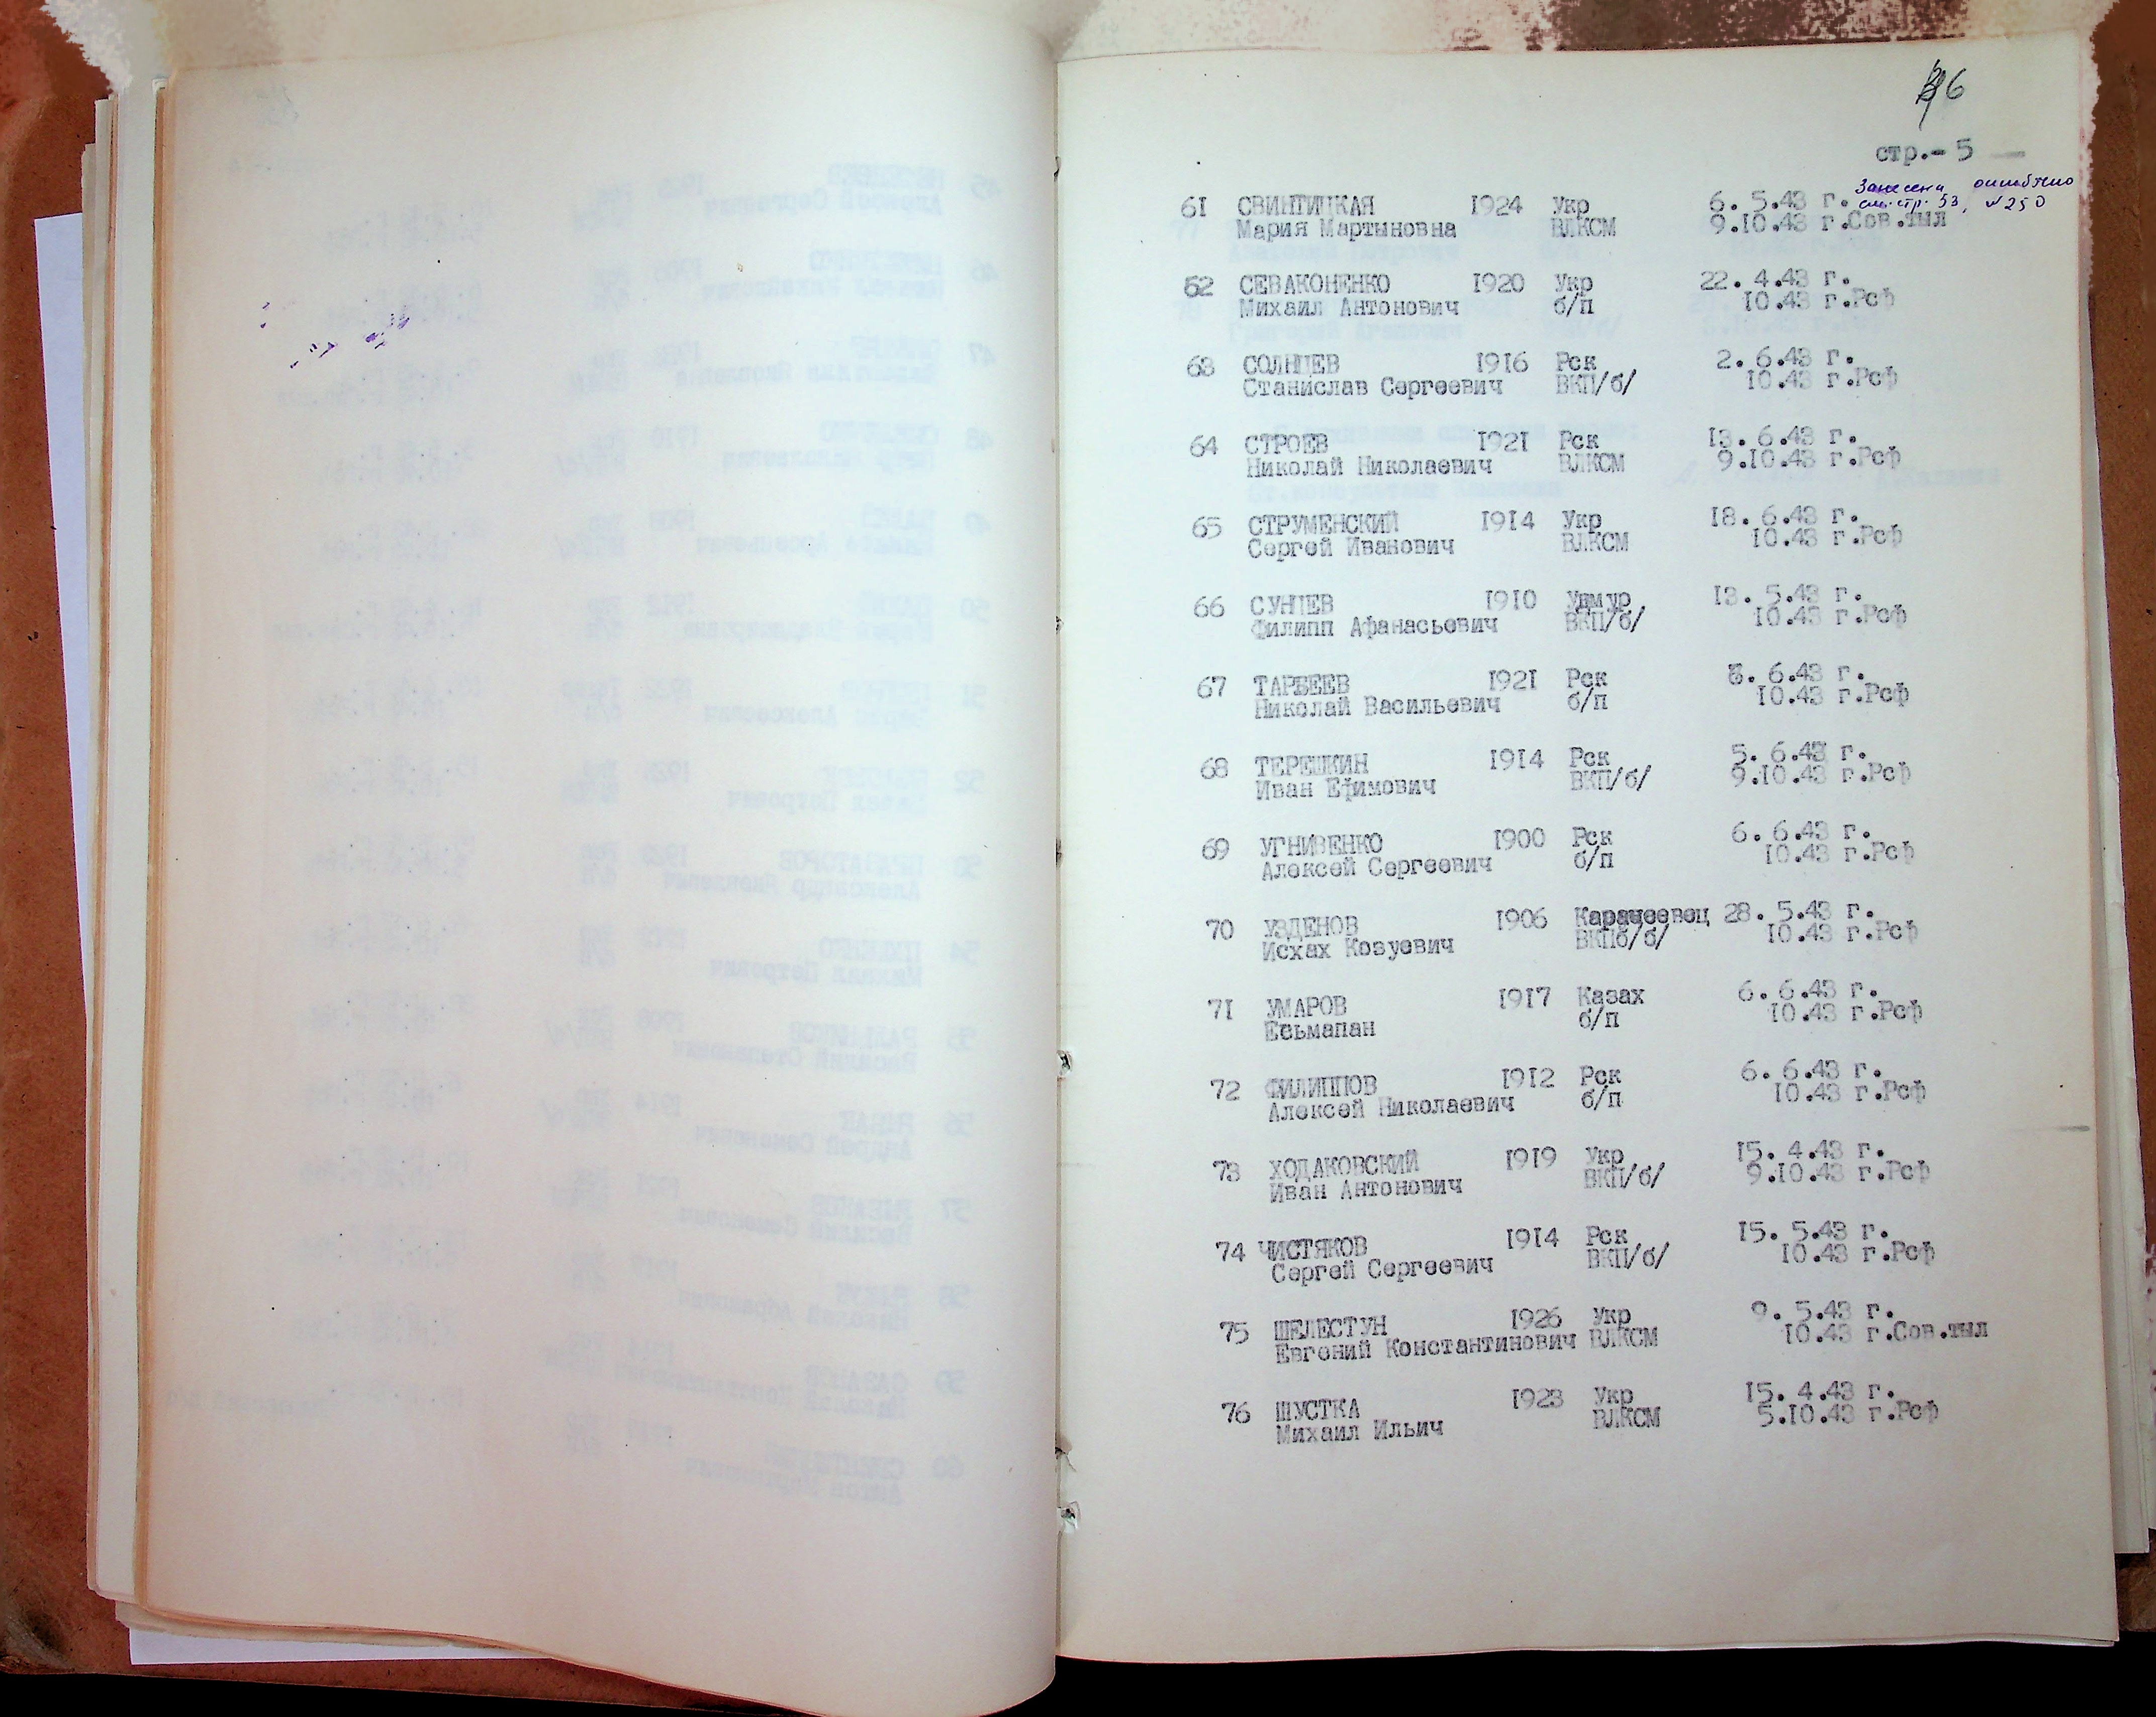 6
стр.- 5
Занесена ошибочно
см. стр. 53, №250
61 СВИНТИЦКАЯ 1924 Укр 6. 5.43 г.
Мария Мартыновна ВЛКСМ 9.10.43 г.Сов.тыл
62 СЕВАКОНЕНКО 1920 Укр 22. 4.43 г.
Михаил Антонович б/п 10.43 г.Рсф
63 СОЛНЦЕВ 1916 Рск 2. 6.43 г.
Станислав Сергеевич ВКП/б/ 10.43 г.Рсф
64 СТРОЕВ 1921 Рск 13. 6.43 г.
Николай Николаевич ВЛКСМ 9.10.43 г.Рсф
65 СТРУМЕНСКИЙ 1914 Укр 18. 6.43 г.
Сергей Иванович ВЛКСМ 10.43 г.Рсф
66 СУНЦЕВ 1910 Удмур 13. 5.43 г.
Филипп Афанасьевич ВКП/б/ 10.43 г.Рсф
67 ТАРБЕЕВ 1921 Рск 6.43 г.
Николай Васильевич б/п 10.43 г.Рсф
68 ТЕРЕШКИН 1914 Рск 5. 6.43 г.
Иван Ефимович ВКП/б/ 9.10.43 г.Рсф
69 УГНИВЕНКО 1900 Рск 6. 6.43 г.
Алексей Сергеевич б/п 10.43 г.Рсф
70 УЗДЕНОВ 1906 Карачеевец 28. 5.43 г.
Исхах Козуевич ВКПб/б/ 10.43 г.Рсф
71 УМАРОВ 1917 Казах 6. 6.43 г.
Есьмапан б/п 10.43 г.Рсф
72 ФИЛИППОВ 1912 Рск 6. 6.43 г.
Алексей Николаевич б/п 10.43 г.Рсф
73 ХОДАКОВСКИЙ 1919 Укр 15. 4.43 г.
Иван Антонович ВКП/б/ 9.10.43 г.Рсф
74 ЧИСТЯКОВ 1914 Рск 15. 5.43 г.
Сергей Сергеевич ВКП/б/ 10.43 г.Рсф
75 ШЕЛЕСТУН 1926 Укр 9. 5.43 г.
Евгений Константинович ВЛКСМ 10.43 г.Сов.тыл
76 ШУСТКА 1923 Укр 15. 4.43 г.
Михаил Ильич ВЛКСМ 5.10.43 г.Рсф